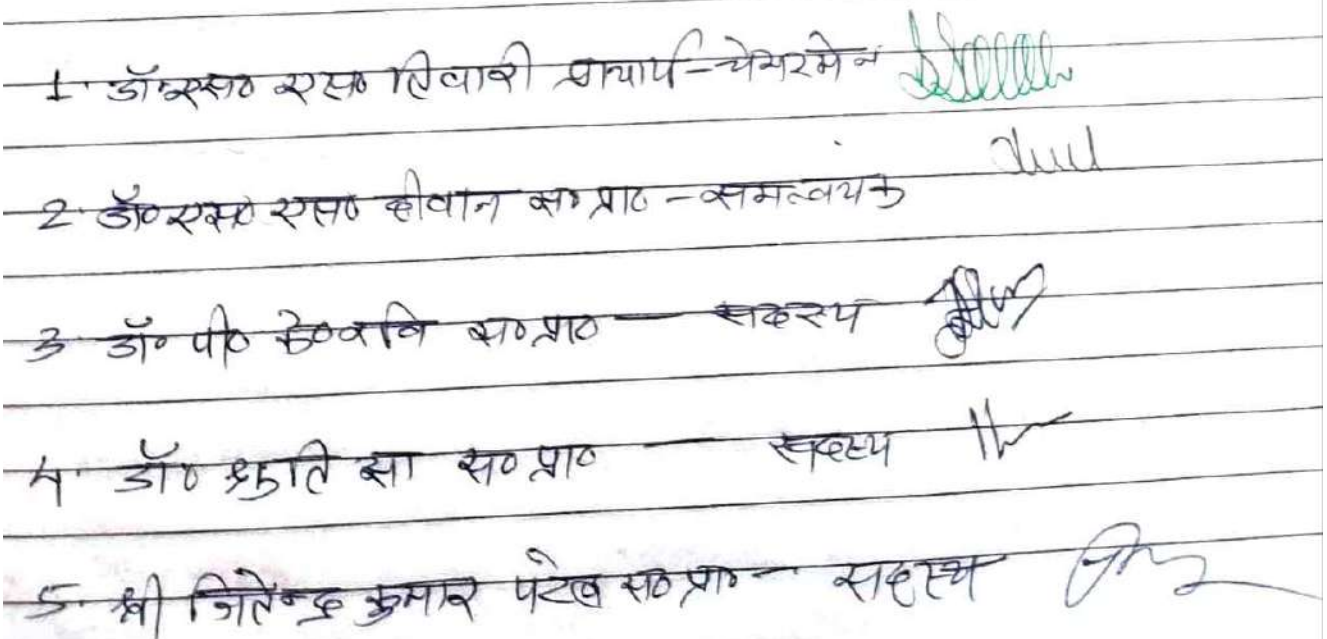 1. डॉ० एस० एस० तिवारी प्राचार्य - चेयरमेन
2. डॉ० एस० एस० दीवान स० प्रा० - समन्वयक
3 डॉ० पी० के० रवि स० प्रा० — सदस्य
4. डॉ० श्रुति झा स० प्रा० — सदस्य
5. श्री जितेन्द्र कुमार पटेल स० प्रा० — सदस्य